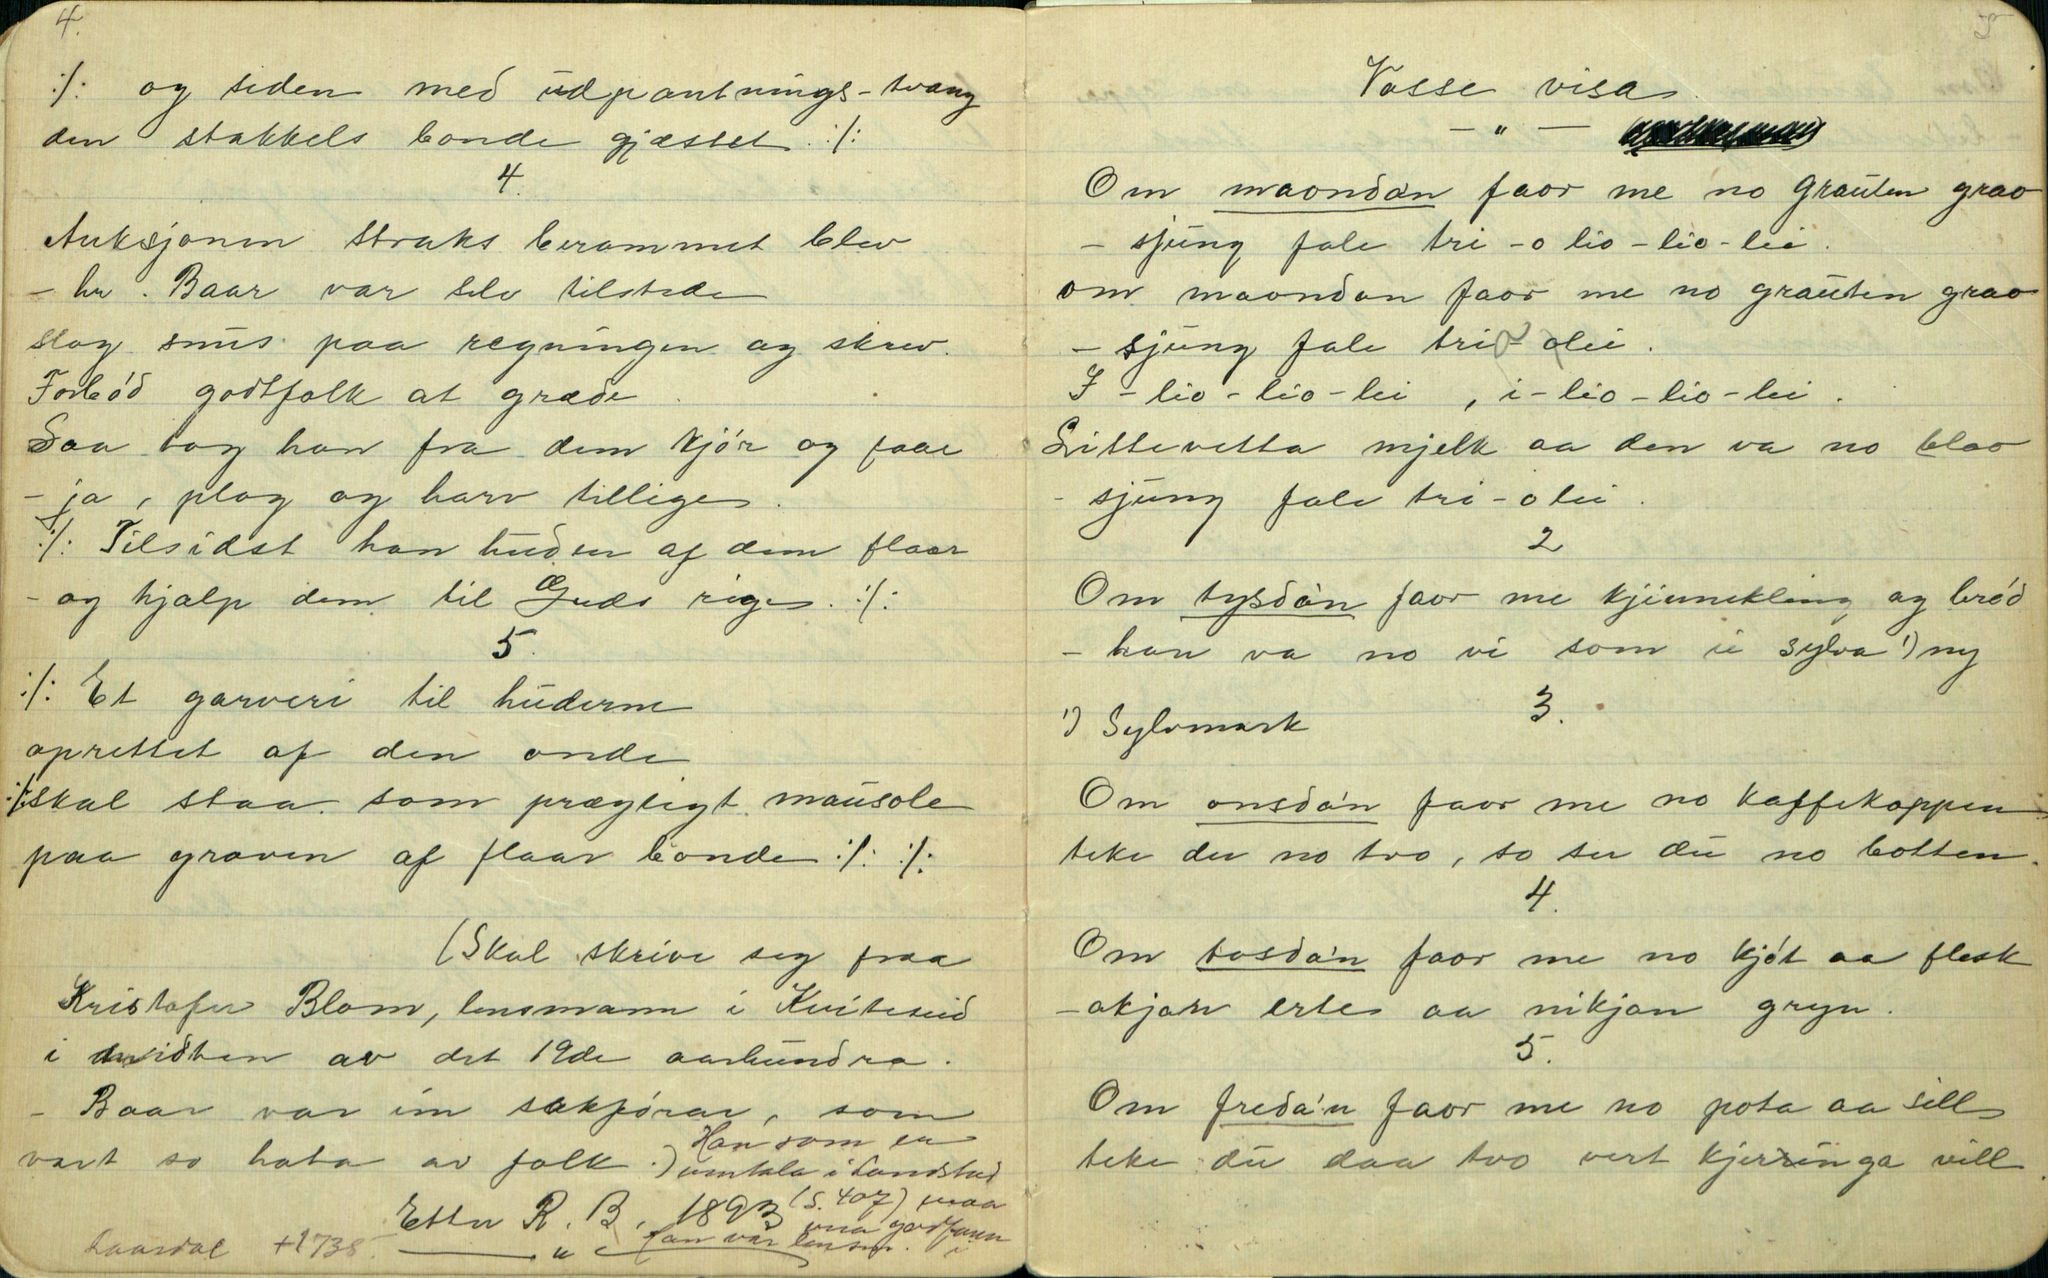 4.
:/: og siden med udpantnings-tvang
den stakkels bonde gjæstet. :/:
4.
Auksjonen straks berammet blev
- hr. Baar var selv tilstede
slog snus paa regningen og skrev.
Forbód godtfolk at græde.
Saa tog han fra dem kjór og faar
- ja, plog og harv tillige.
:/: Tilsidst han huden af dem flaar
- og hjalp dem til Guds rige. :/:
5.
:/: Et garveri til huderne
oprettet af den onde
:/: skal staa som prægtigt mausole
paa graven af flaar bonde :/: :/:
(Skal skrive seg fraa
Kristofer Blom, lensmann i Kviteseid
i midten av det 19de aarhundra.
- Baar var ein sakfórar, som
vart so hata av folk.) Han som er
omtala i Landstad
(S. 407) maa
vera godfaren
Etter R. B. 1893
— " — han var lensm. i
Laardal +1738.
5
Vosse visa
- " -
Om maondàn faor me no grauten grao
- sjung fale tri-o lio-lio-lei.
om maondan faor me no grauten grao
- sjung fale tri-olei.
I-lio-lio-lei, i-lio-lio-lei.
Littevetta mjelk aa den va no blao
- sjung fale tri-olei.
2
Om tysdàn faor me kjinnekling og bród
- han va no vi som ei sylva 1) ny
3.
1) Sylvmark
Om onsdàn faor me no kaffekoppen
teke du no tvo, so ser du no botten.
4.
Om tosdàn faor me no kjót aa flesk
- okjan erte aa nikjan gryn.
5.
Om fredàn faor me no pota aa sill
teke du daa tvo vert kjerringa vill.